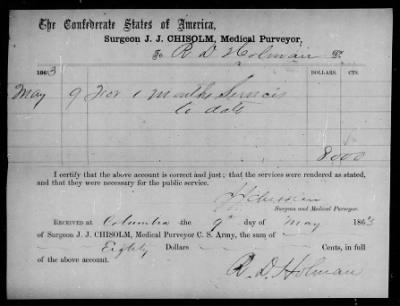 The Confederate States of America,
Surgeon J. J. CHISOLM, Medical Purveyor,
To R D Holman Dr.
1863 DOLLARS. CTS.
May 9 For 1 months Services
to date
80 00
I certify that the above account is correct and just; that the services were rendered as stated,
and that they were necessary for the public service.
J J Chisolm
Surgeon and Medical Purveyor.
RECEIVED AT Columbia the 9th day of May 1863
of Surgeon J. J. CHISOLM, Medical Purveyor C. S. Army, the sum of
Eighty Dollars Cents, in full
of the above account.
R. D. Holman